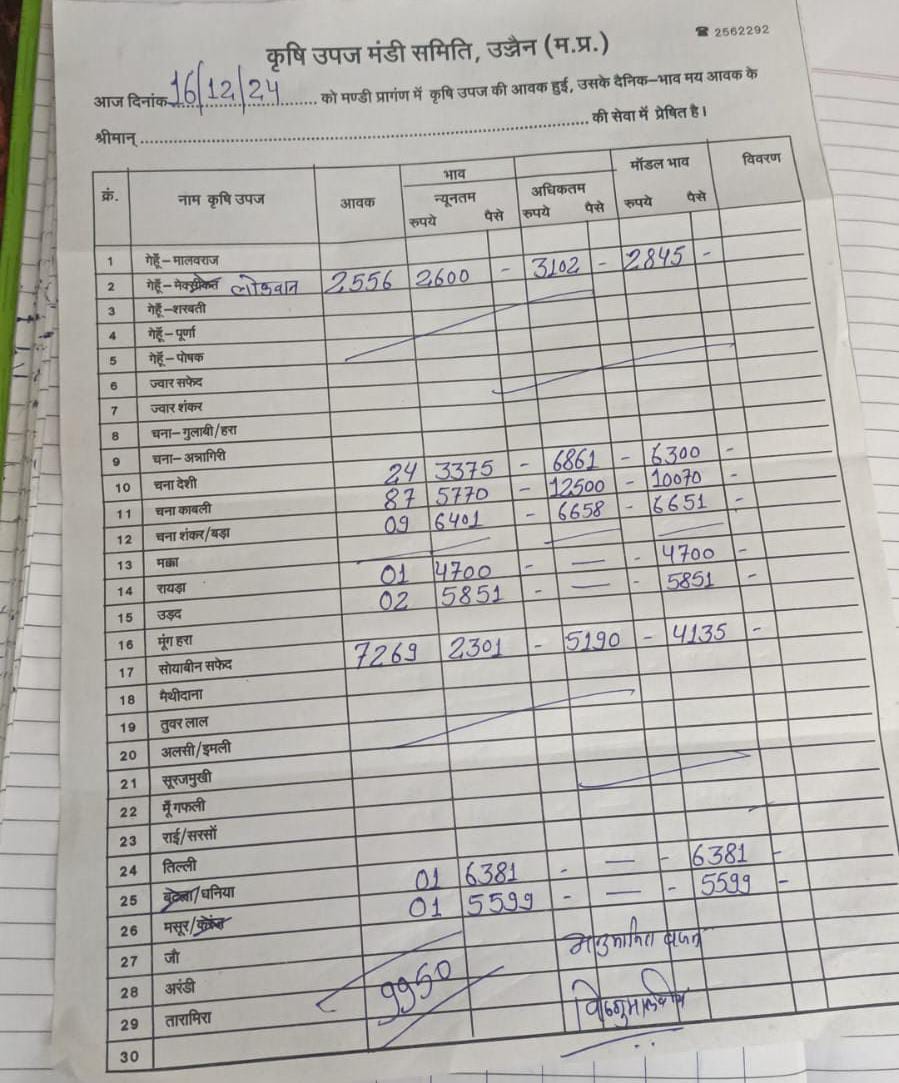 ☎ 2562292
कृषि उपज मंडी समिति, उज्जैन (म.प्र.)
आज दिनांक 16/12/24 को मण्डी प्रागंण में कृषि उपज की आवक हुई, उसके दैनिक-भाव मय आवक के
श्रीमान् ........ की सेवा में प्रेषित है।
क्रं. नाम कृषि उपज आवक भाव न्यूनतम रुपये पैसे अधिकतम रुपये पैसे मॉडल भाव रुपये पैसे विवरण
1 गेहूँ-मालवराज
2 गेहूँ-मेक्सीकन लोकवान 2556 2600 - 3102 - 2845 -
3 गेहूँ-शरबती
4 गेहूँ-पूर्णा
5 गेहूँ-पोषक
6 ज्वार सफेद
7 ज्वार शंकर
8 चना-गुलाबी/हरा
9 चना-अन्नागिरी
10 चना देशी 24 3375 - 6861 - 6300 -
11 चना काबली 87 5770 - 12500 - 10070 -
12 चना शंकर/बड़ा 09 6401 - 6658 - 6651 -
13 मक्का
14 रायड़ा 01 4700 - — - 4700 -
15 उड़द 02 5851 - — - 5851 -
16 मूंग हरा
17 सोयाबीन सफेद 7269 2301 - 5190 - 4135 -
18 मैथीदाना
19 तुवर लाल
20 अलसी/इमली
21 सूरजमुखी
22 मूँगफली
23 राई/सरसों
24 तिल्ली
25 बटला/धनिया 01 6381 - — - 6381 -
26 मसूर/ 01 5599 - — - 5599 -
27 जौ
28 अरंडी 9950
29 तारामिरा
30